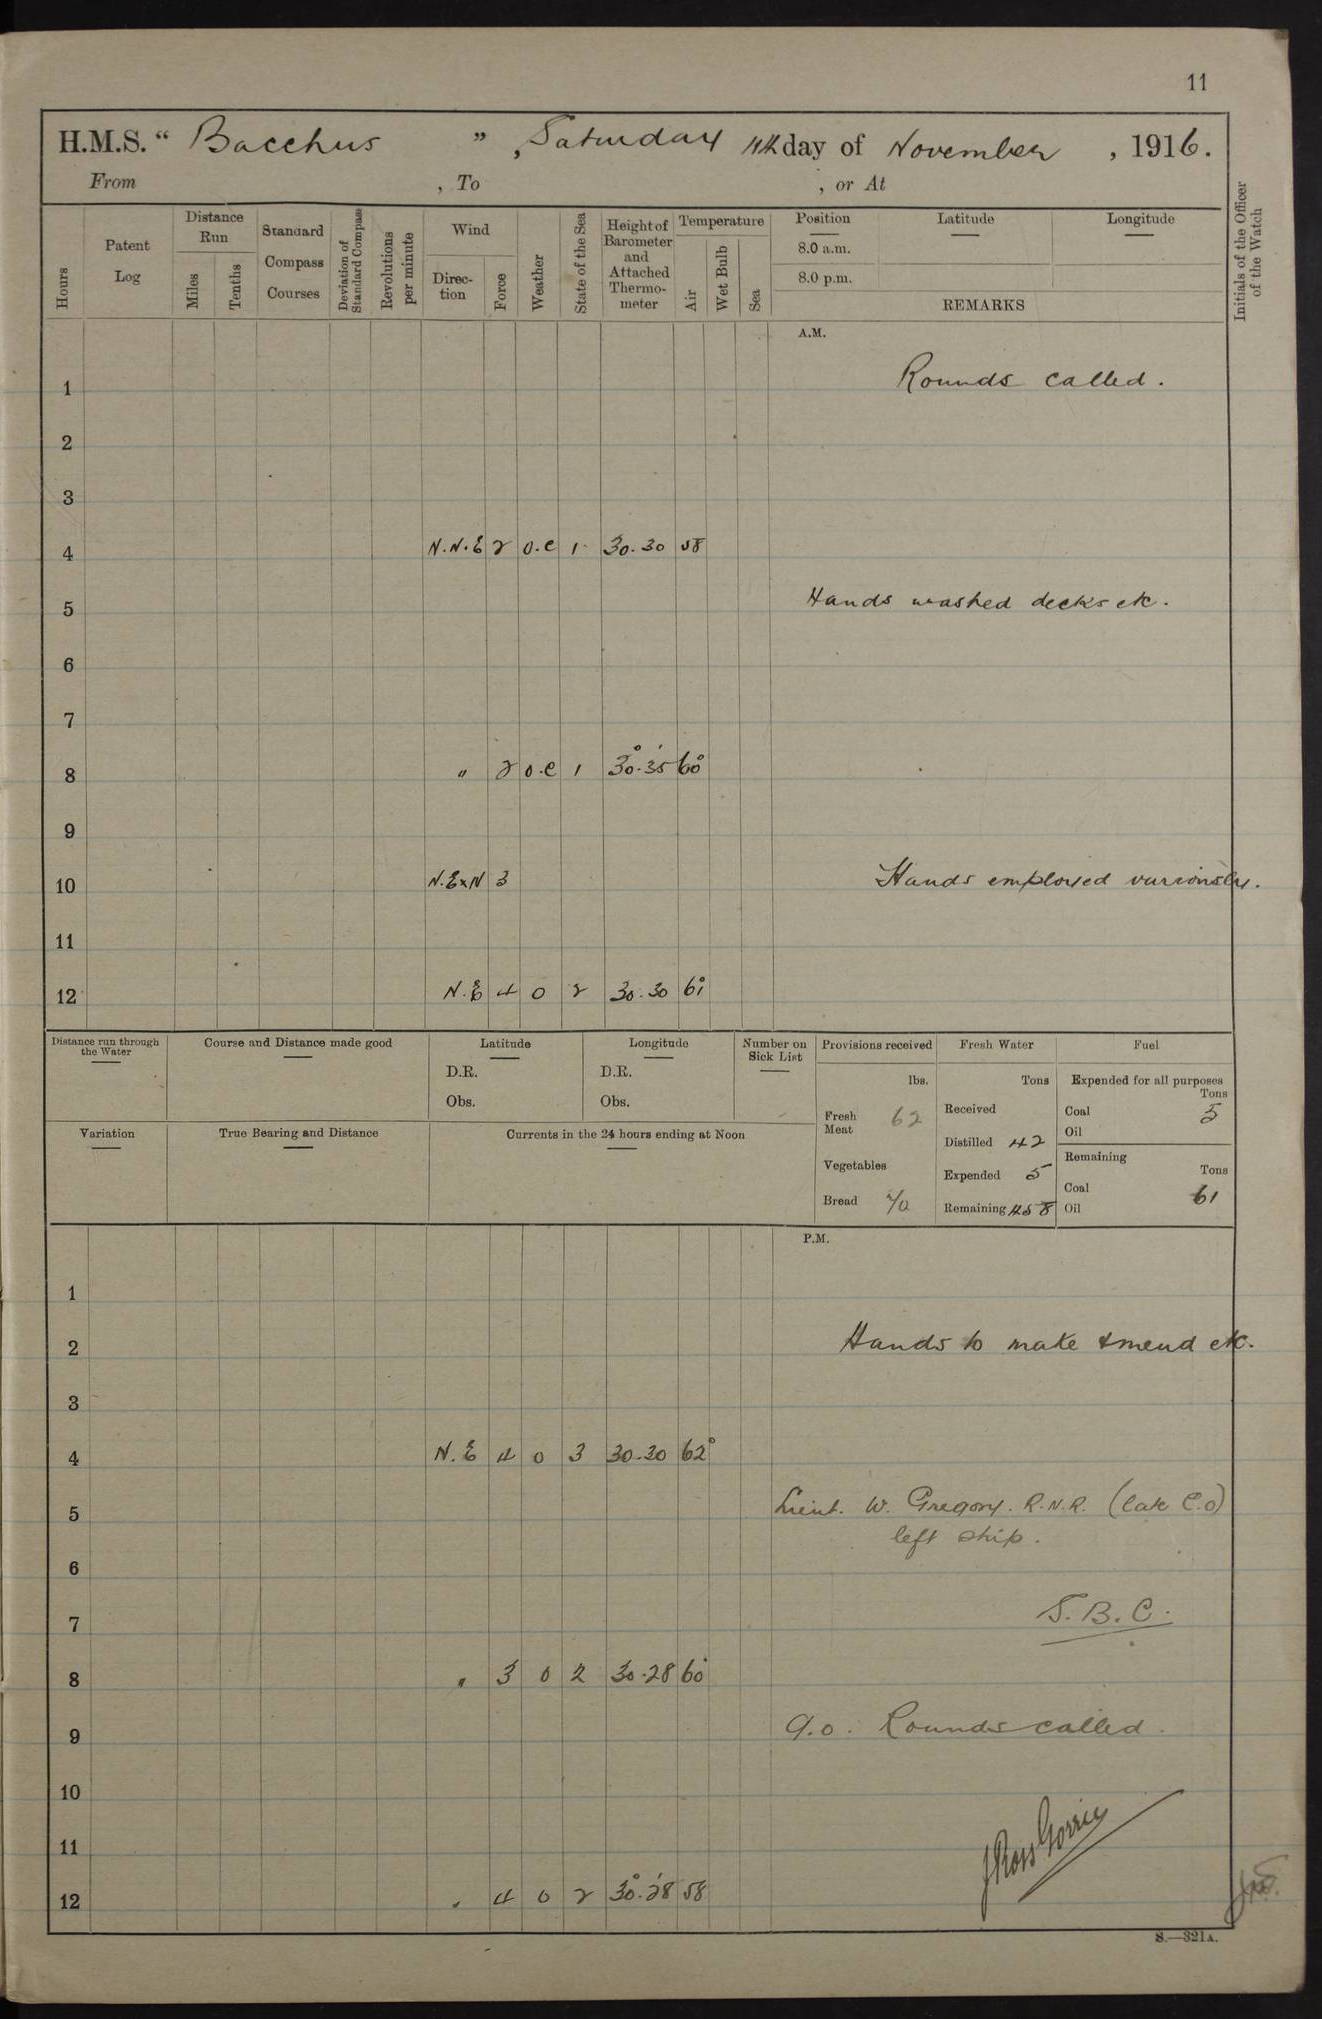 11
H.M.S. “ Bacchus ”, Saturday 11th day of November, 1916.
From , To , or At
Hours
Patent Log
Distance Run
Miles
Tenths
Standard Compass Courses
Deviation of Standard Compass
Revolutions per minute
Wind
Direction
Force
Weather
State of the Sea
Height of Barometer and Attached Thermometer
Temperature
Air
Wet Bulb
Sea
Position
Latitude
Longitude
8.0 a.m.
8.0 p.m.
REMARKS
Initials of the Officer of the Watch
A.M.
1 Rounds called.
2
3
4 N.N.E 2 o.c 1 30.30 58
5 Hands washed decks etc.
6
7
8 " 2 o.c 1 30.35 60°
9
10 N.ExN 3 Hands employed variously.
11
12 N.E 4 o 2 30.30 61°
Distance run through the Water
Course and Distance made good
Latitude
D.R.
Obs.
Longitude
D.R.
Obs.
Number on Sick List
Variation
True Bearing and Distance
Currents in the 24 hours ending at Noon
Provisions received
lbs.
Fresh Meat 62
Vegetables
Bread
Fresh Water
Tons
Received
Distilled 42
Expended 5
Remaining 458
Fuel
Expended for all purposes
Tons
Coal 5
Oil
Remaining
Tons
Coal 61
Oil
P.M.
1
2 Hands to make & mend etc.
3
4 N.E 4 o 3 30.30 62°
5 Lieut. W. Gregory. R.N.R. (late C.O)
left ship.
6
7 S.B.C.
8 " 3 o 2 30.28 60°
9 9.0. Rounds called.
10
11 J Ross Gorrie
12 " 4 o 2 30.28 58
S.—321A.